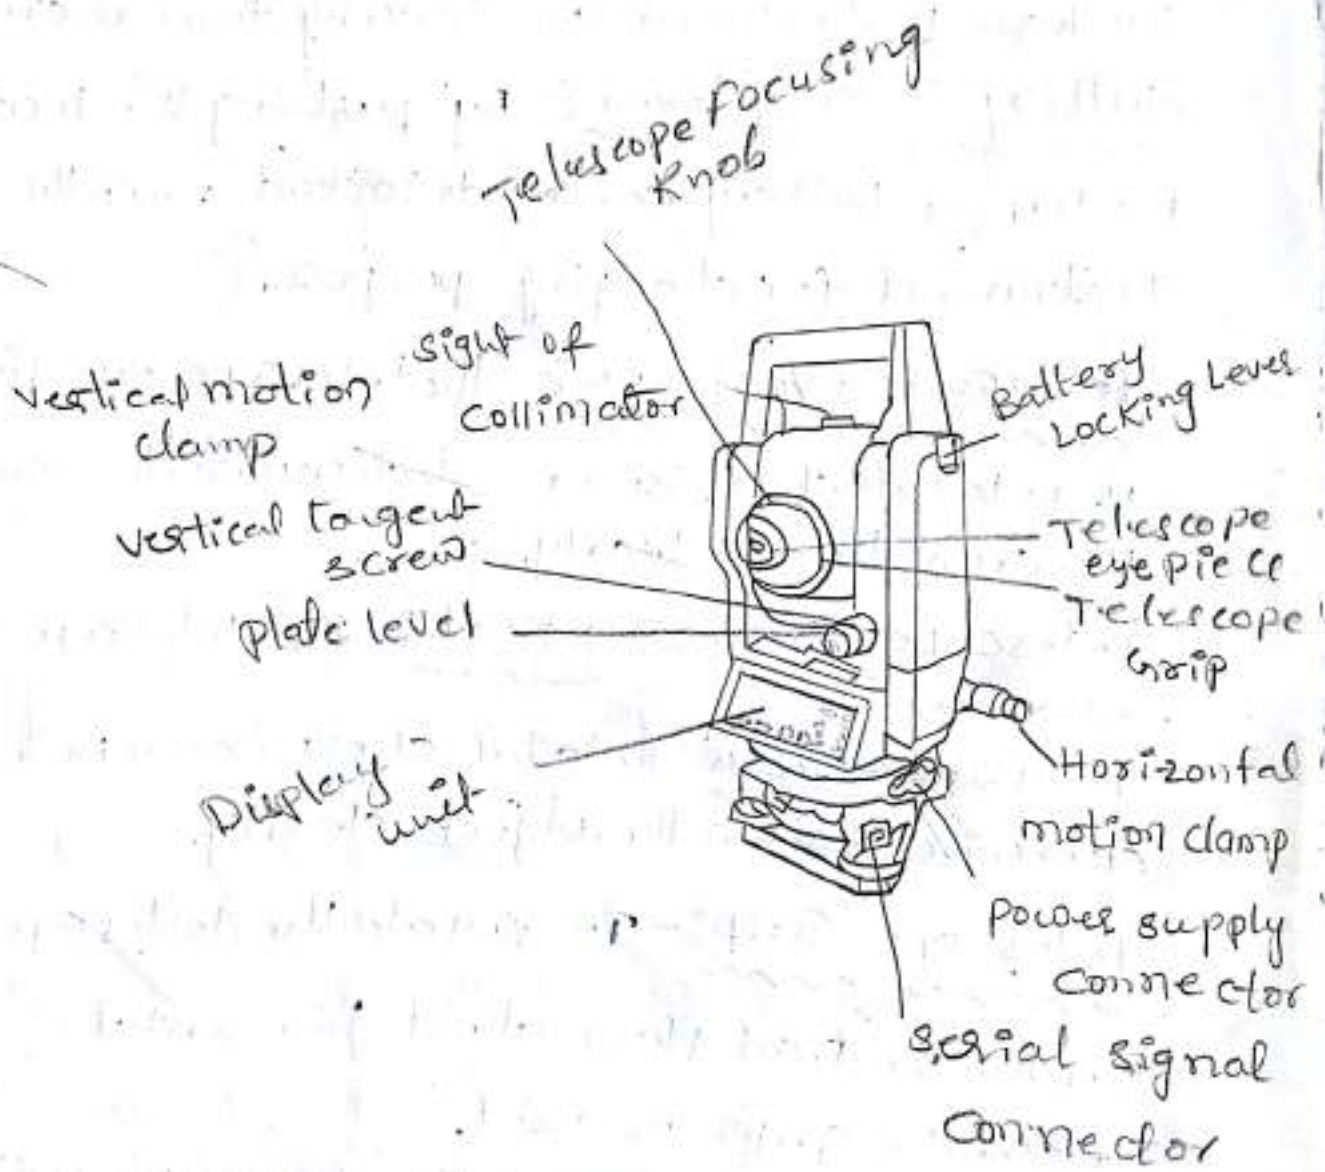 Telescope Focusing
Knob
sight of
Collimator
vertical motion
clamp
vertical tangent
screw
plate level
Display
unit
Battery
Locking Lever
Telescope
eyepiece
Telescope
Grip
Horizontal
motion clamp
power supply
Connector
serial signal
Connector